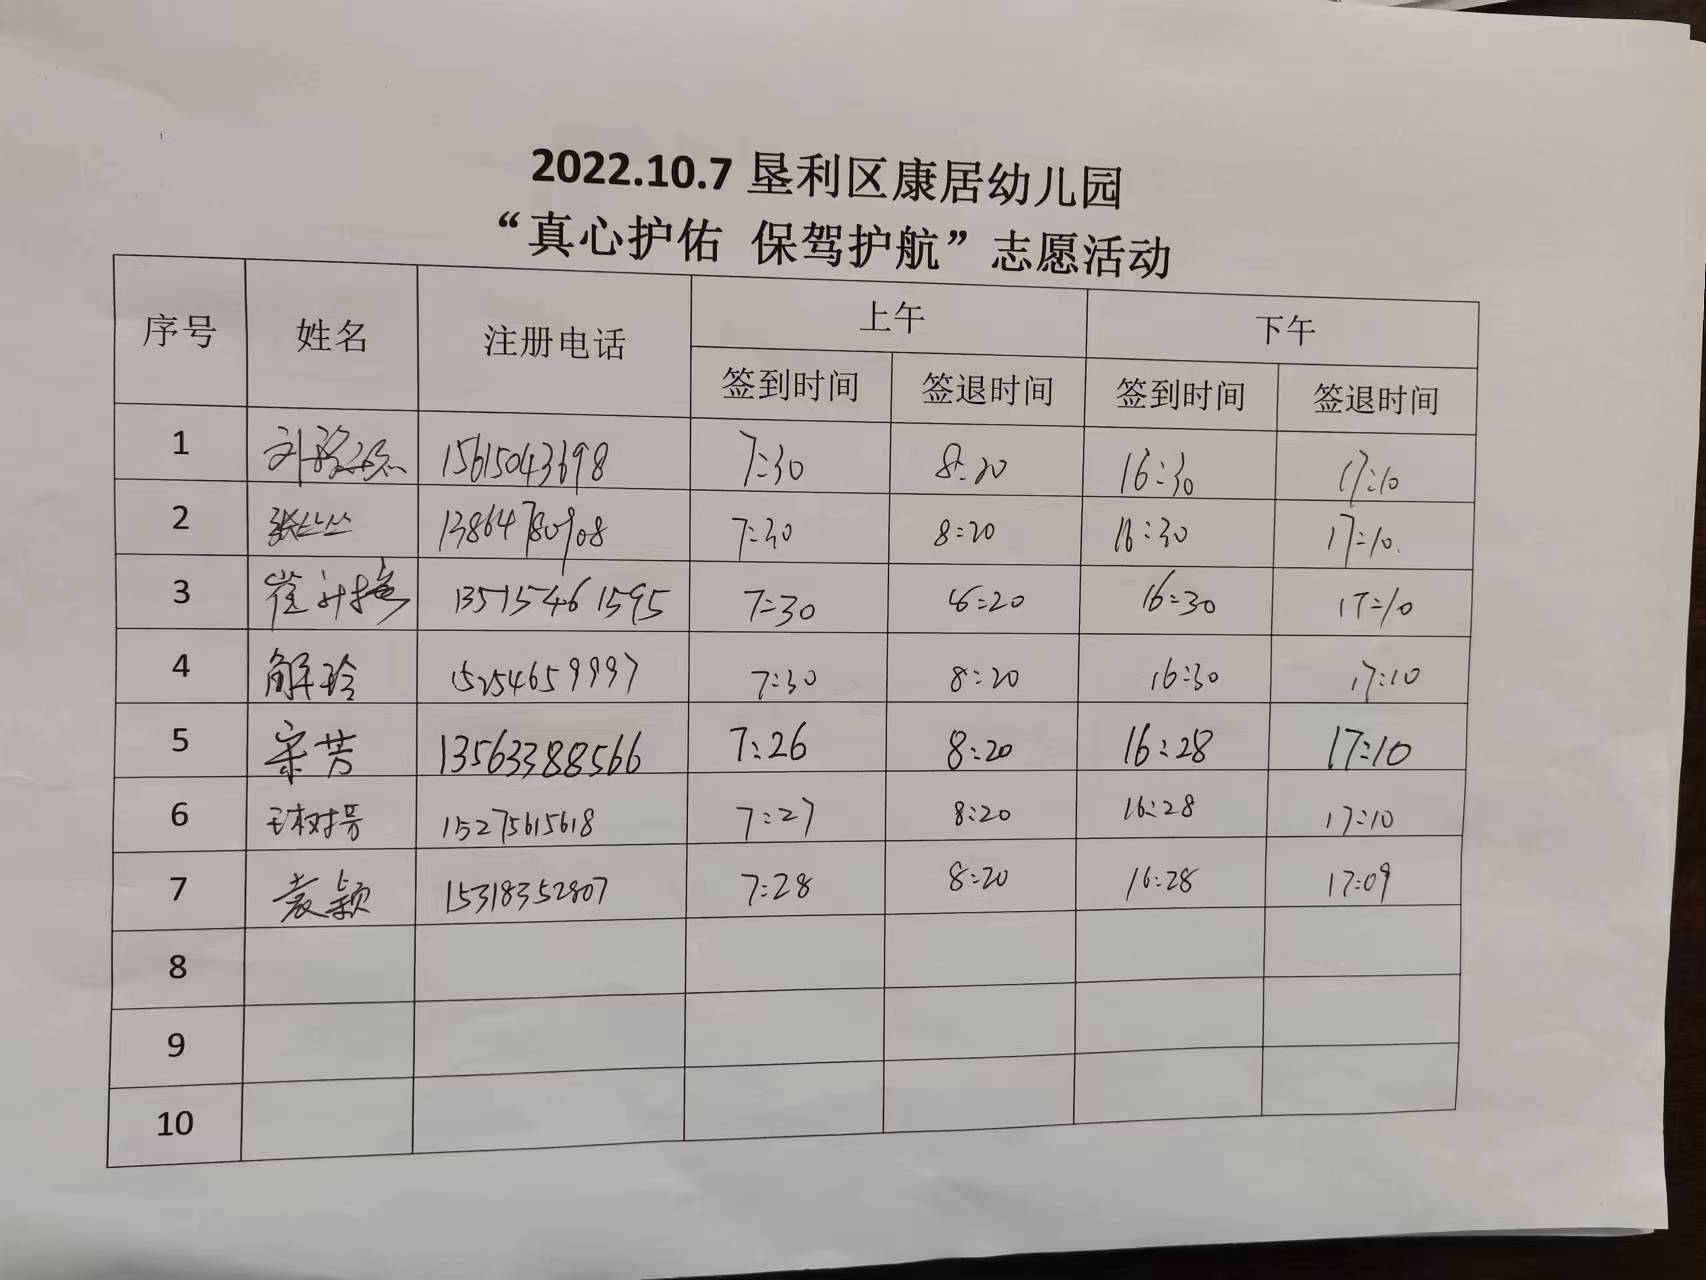 2022.10.7 垦利区康居幼儿园
“真心护佑 保驾护航”志愿活动
序号 姓名 注册电话 上午 下午
签到时间 签退时间 签到时间 签退时间
1 15615043698 7:30 8:20 16:30 17:10
2 张丛丛 13864780908 7:30 8:20 16:30 17:10
3 崔 13515461595 7:30 8:20 16:30 17:10
4 解玲 15254659997 7:30 8:20 16:30 17:10
5 宋芳 13563388566 7:26 8:20 16:28 17:10
6 15275615618 7:27 8:20 16:28 17:10
7 袁颖 15318352807 7:28 8:20 16:28 17:09
8
9
10